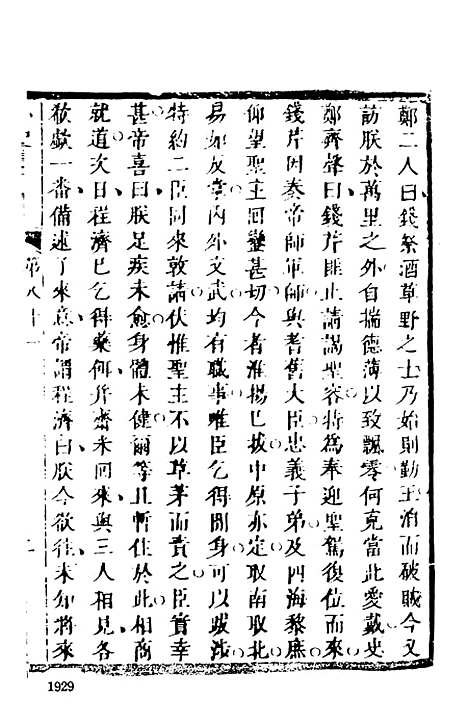 鄭二人曰錢芹酒草野之士乃始則勤王治而破賊今又
訪朕於萬里之外自揣德薄以致飄零何克當此愛戴史
鄭齊聲曰錢芹匪止請謁聖容特爲奉迎聖駕復位而來
錢芹因奏帝師軍師與耆舊大臣忠義子弟及四海黎庶
仰望聖主回鑾甚切今者淮揚已拔中原亦定取南取北
易如反掌內外文武均有職事唯臣乞得閒身可以跋涉
特約二臣同來敦請伏惟聖主不以草茅而責之臣實幸
甚帝喜曰朕足疾未愈身體未健爾等且暫住於此相商
就道次日程濟已乞得藥餌幷齋米回來與三人相見各
欷歔一番備述了來意帝謂程濟曰朕今欲往未知將來
第八十一
1929